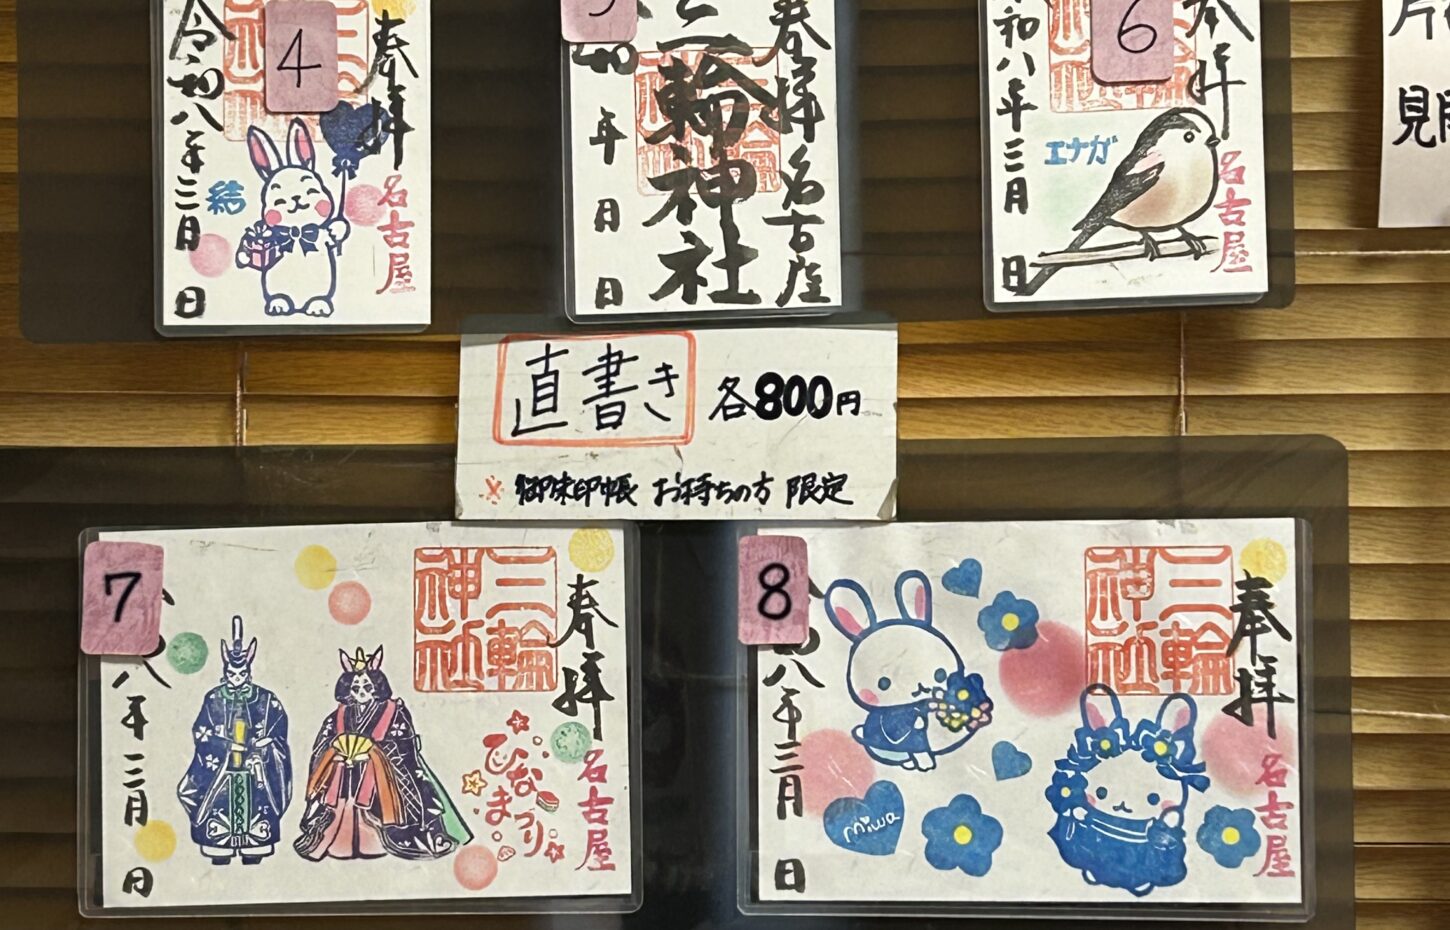 4
奉拝
令和八年三月
日
結
名古屋
奉拝 名古屋
三輪神社
年 月 日
6
奉拝
和八年三月
日
エナガ
名古屋
直書き 各800円
※御朱印帳 お持ちの方 限定
7
奉拝
三輪神社
八年三月
日
ひなまつり
名古屋
8
奉拝
三輪神社
八年三月
日
miwa
名古屋
見